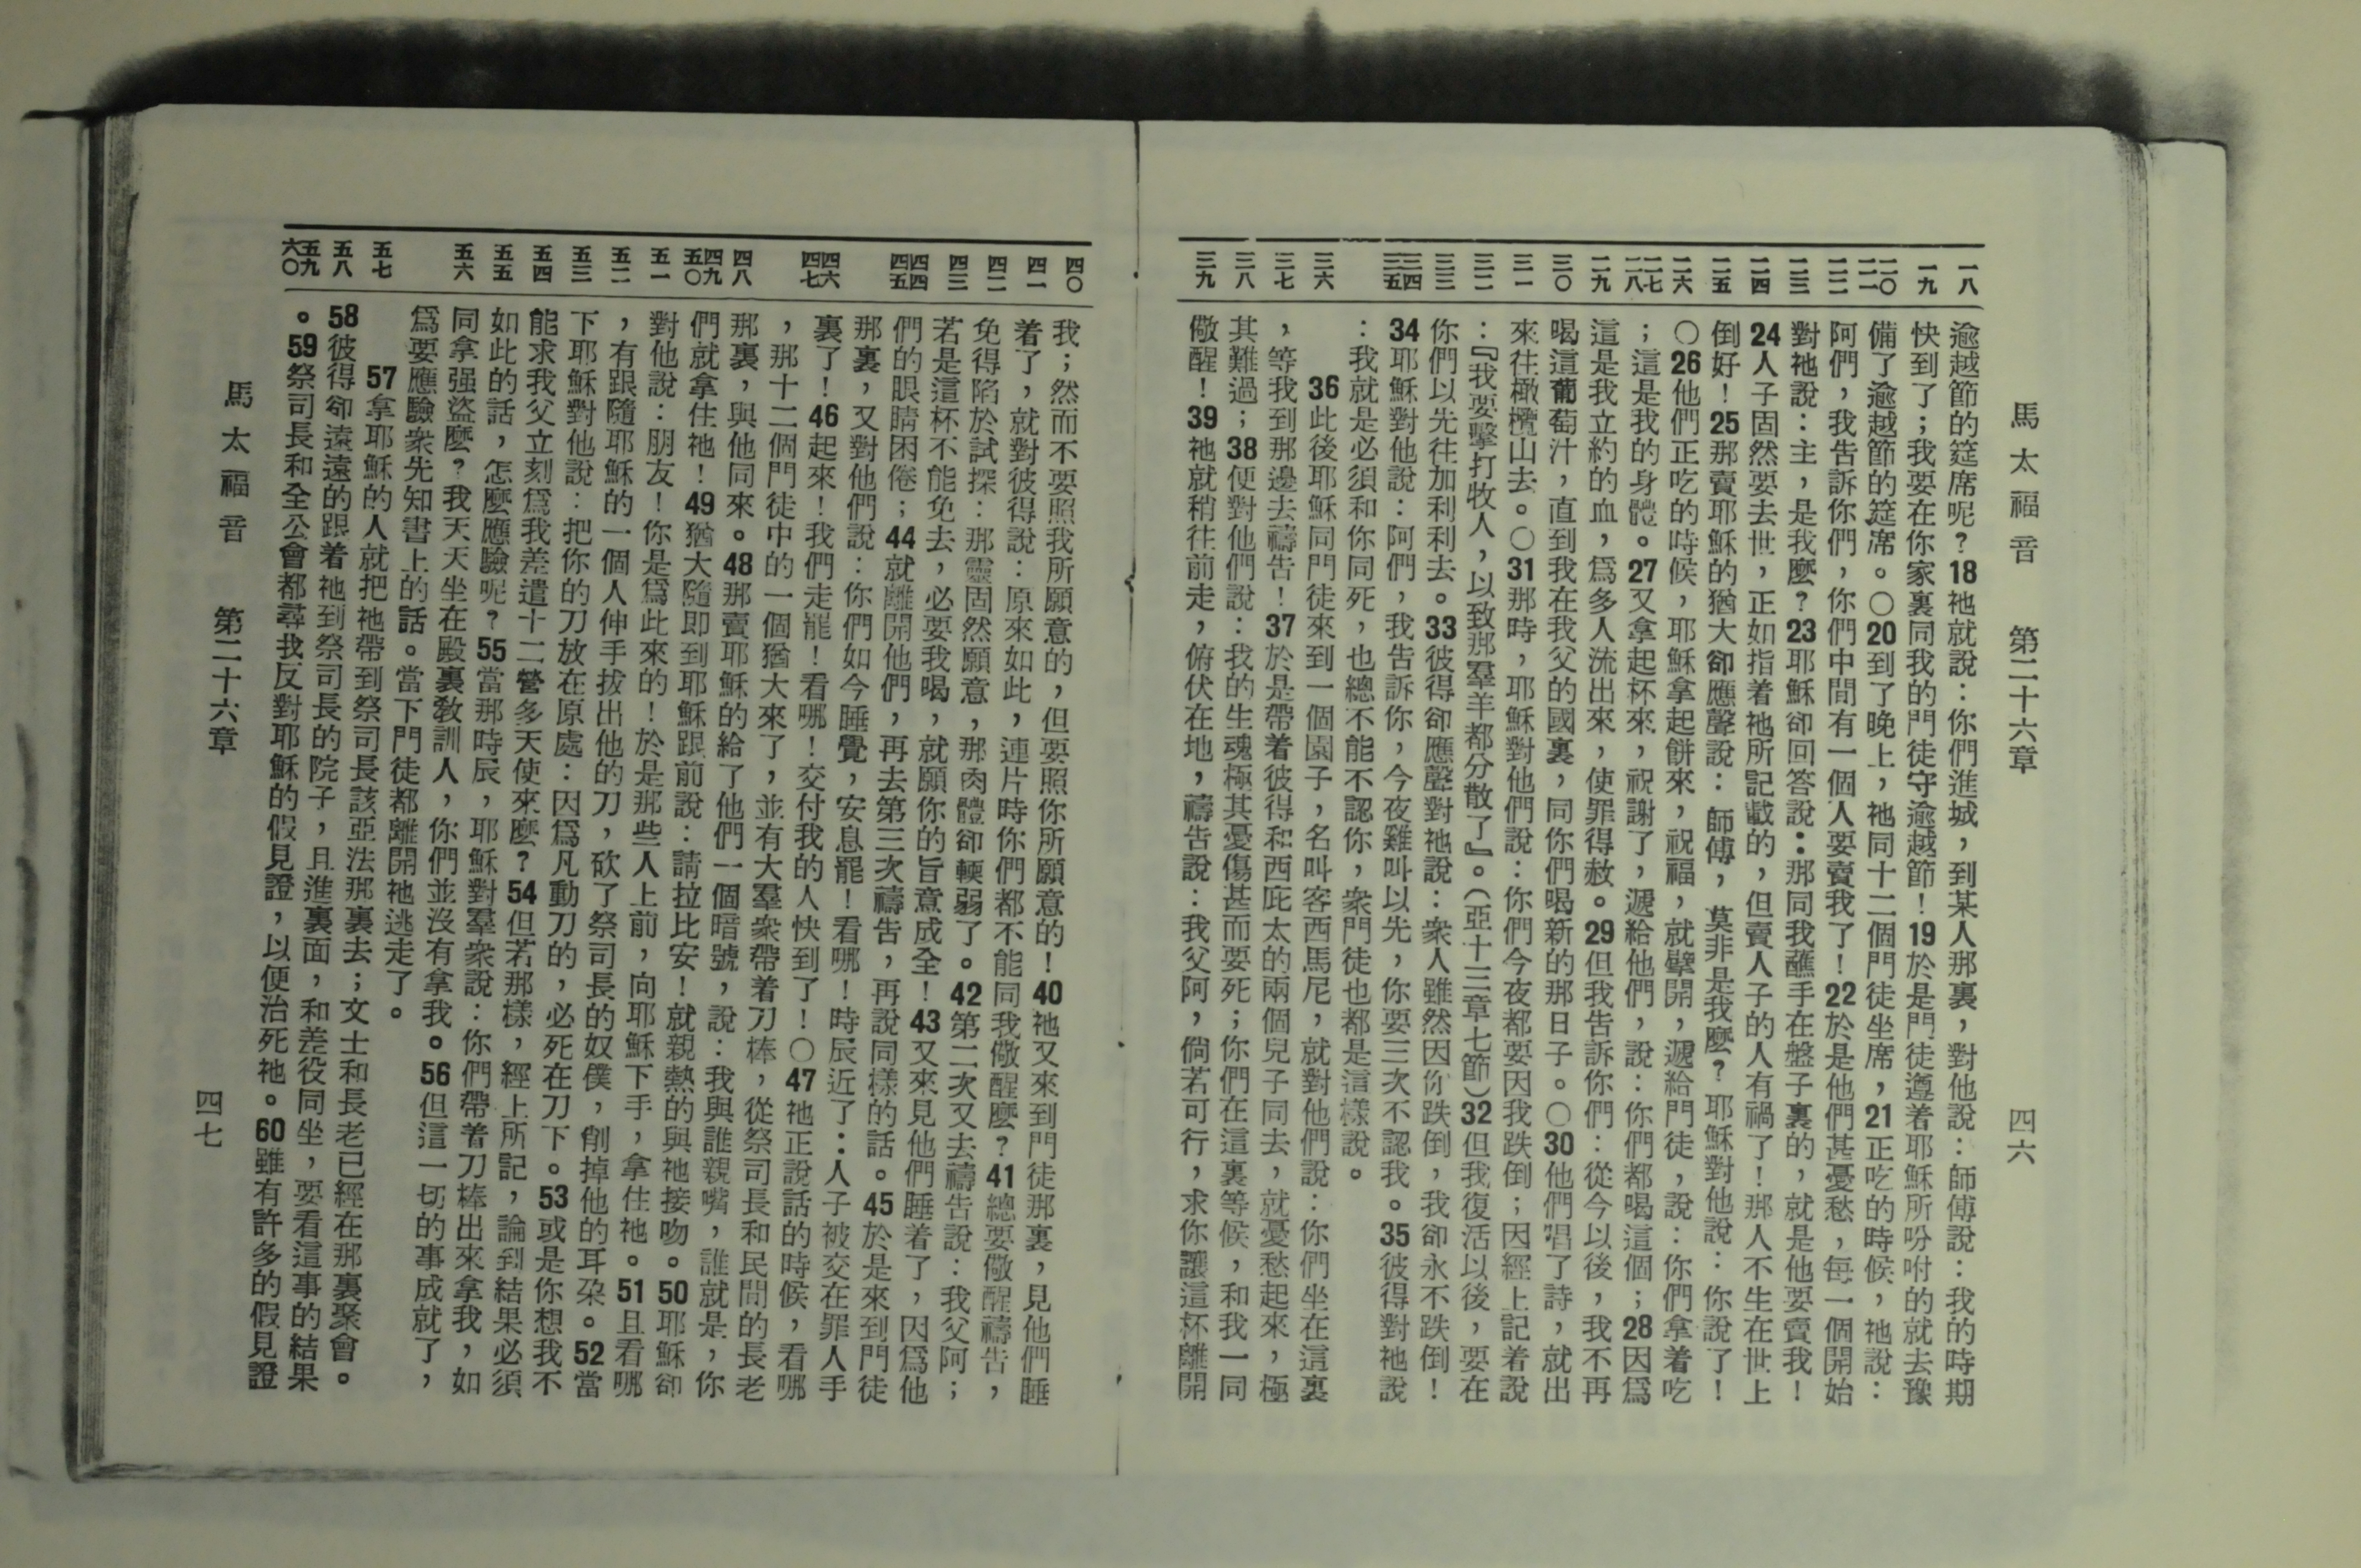 馬太福音 第二十六章 四六
一八 一九 二〇 二一 二二 二三 二四 二五 二六 二七 二八 二九 三〇 三一 三二 三三 三四 三五 三六 三七 三八 三九
逾越節的筵席呢?18祂就說:你們進城,到某人那裏,對他說:師傅說:我的時期
快到了;我要在你家裏同我的門徒守逾越節!19於是門徒遵着耶穌所吩咐的就去豫
備了逾越節的筵席。〇20到了晚上,祂同十二個門徒坐席,21正吃的時候,祂說:
阿們,我告訴你們,你們中間有一個人要賣我了!22於是他們甚憂愁,每一個開始
對祂說:主,是我麼?23耶穌卻回答說:那同我蘸手在盤子裏的,就是他要賣我!
24人子固然要去世,正如指着祂所記載的,但賣人子的人有禍了!那人不生在世上
倒好!25那賣耶穌的猶大卻應聲說:師傅,莫非是我麼?耶穌對他說:你說了!
〇26他們正吃的時候,耶穌拿起餅來,祝福,就擘開,遞給門徒,說:你們拿着吃
;這是我的身體。27又拿起杯來,祝謝了,遞給他們,說:你們都喝這個;28因爲
這是我立約的血,爲多人流出來,使罪得赦。29但我告訴你們:從今以後,我不再
喝這葡萄汁,直到我在我父的國裏,同你們喝新的那日子。〇30他們唱了詩,就出
來往橄欖山去。〇31那時,耶穌對他們說:你們今夜都要因我跌倒;因經上記着說
:『我要擊打牧人,以致那羣羊都分散了』。(亞十三章七節)32但我復活以後,要在
你們以先往加利利去。33彼得卻應聲對祂說:衆人雖然因你跌倒,我卻永不跌倒!
34耶穌對他說:阿們,我告訴你,今夜雞叫以先,你要三次不認我。35彼得對祂說
:我就是必須和你同死,也總不能不認你,衆門徒也都是這樣說。
36此後耶穌同門徒來到一個園子,名叫客西馬尼,就對他們說:你們坐在這裏
,等我到那邊去禱告!37於是帶着彼得和西庇太的兩個兒子同去,就憂愁起來,極
其難過;38便對他們說:我的生魂極其憂傷甚而要死;你們在這裏等候,和我一同
儆醒!39祂就稍往前走,俯伏在地,禱告說:我父阿,倘若可行,求你讓這杯離開
四〇 四一 四二 四三 四四 四五 四六 四七 四八 四九 五〇 五一 五二 五三 五四 五五 五六 五七 五八 五九 六〇
我;然而不要照我所願意的,但要照你所願意的!40祂又來到門徒那裏,見他們睡
着了,就對彼得說:原來如此,連片時你們都不能同我儆醒麼?41總要儆醒禱告,
免得陷於試探:那靈固然願意,那肉體卻輭弱了。42第二次又去禱告說:我父阿;
若是這杯不能免去,必要我喝,就願你的旨意成全!43又來見他們睡着了,因爲他
們的眼睛困倦;44就離開他們,再去第三次禱告,再說同樣的話。45於是來到門徒
那裏,又對他們說:你們如今睡覺,安息罷!看哪!時辰近了:人子被交在罪人手
裏了!46起來!我們走罷!看哪!交付我的人快到了!〇47祂正說話的時候,看哪
,那十二個門徒中的一個猶大來了,並有大羣衆帶着刀棒,從祭司長和民間的長老
那裏,與他同來。48那賣耶穌的給了他們一個暗號,說:我與誰親嘴,誰就是,你
們就拿住祂!49猶大隨即到耶穌跟前說:請拉比安!就親熱的與祂接吻。50耶穌卻
對他說:朋友!你是爲此來的!於是那些人上前,向耶穌下手,拿住祂。51且看哪
,有跟隨耶穌的一個人伸手拔出他的刀,砍了祭司長的奴僕,削掉他的耳朶。52當
下耶穌對他說:把你的刀放在原處:因爲凡動刀的,必死在刀下。53或是你想我不
能求我父立刻爲我差遣十二營多天使來麼?54但若那樣,經上所記,論到結果必須
如此的話,怎麼應驗呢?55當那時辰,耶穌對羣衆說:你們帶着刀棒出來拿我,如
同拿强盜麼?我天天坐在殿裏教訓人,你們並沒有拿我。56但這一切的事成就了,
爲要應驗衆先知書上的話。當下門徒都離開祂逃走了。
57拿耶穌的人就把祂帶到祭司長該亞法那裏去;文士和長老已經在那裏聚會。
58彼得卻遠遠的跟着祂到祭司長的院子,且進裏面,和差役同坐,要看這事的結果
。59祭司長和全公會都尋我反對耶穌的假見證,以便治死祂。60雖有許多的假見證
馬太福音 第二十六章 四七